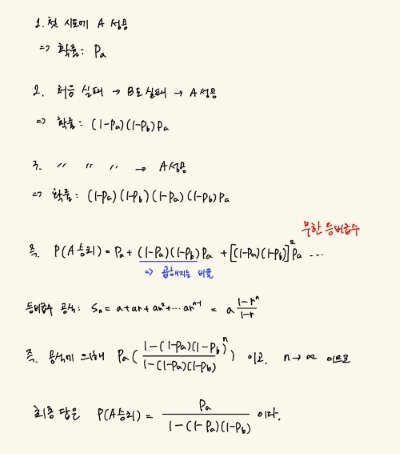 1. 첫 시도에 A 성공
=> 확률: Pa
2. 처음 실패 → B도 실패 → A 성공
=> 확률: (1-Pa)(1-Pb)Pa
3. 〃 〃 〃 → A 성공
=> 확률: (1-Pa)(1-Pb)(1-Pa)(1-Pb)Pa
무한 등비급수
즉. P(A 승리) = Pa + (1-Pa)(1-Pb)Pa + [(1-Pa)(1-Pb)]²Pa ...
=> 곱해지는 비율
등비급수 공식: Sn = a + ar + ar² + ... arⁿ⁻¹ = a (1-rⁿ)/(1-r)
즉. 공식에 의해 Pa( (1-((1-Pa)(1-Pb))ⁿ)/(1-(1-Pa)(1-Pb)) ) 이고. n→∞ 이므로
최종 답은 P(A승리) = Pa/(1-(1-Pa)(1-Pb)) 이다.